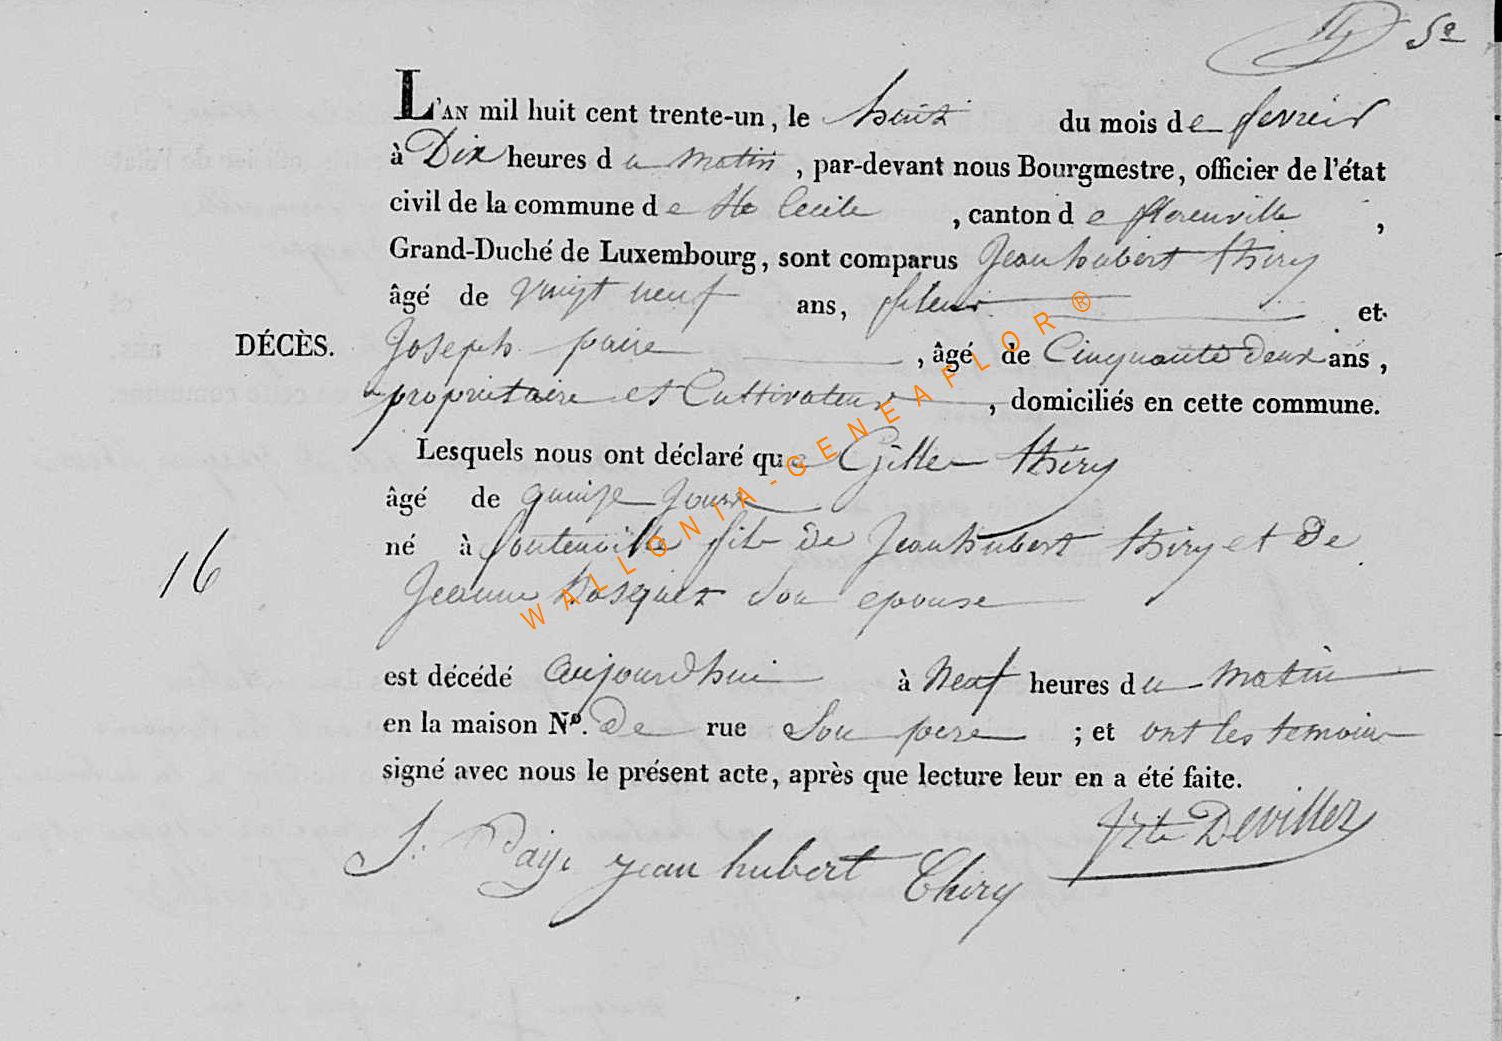 5e
L'AN mil huit cent trente-un, le huit du mois de fevrier
à Dix heures du matin, par-devant nous Bourgmestre, officier de l'état
civil de la commune de Ste Cecile, canton de florenville,
Grand-Duché de Luxembourg, sont comparus Jean hubert thiry
âgé de vingt neuf ans, fileur et
DÉCÈS. Joseph paire, âgé de Cinquante deux ans,
propriétaire et Cultivateur, domiciliés en cette commune.
Lesquels nous ont déclaré que Gille thiry
âgé de quinze jours
né à fontenoille fils de Jean hubert thiry et de
16
Jeanne hosquet son epouse
est décédé aujourdhui à Neuf heures du matin
en la maison No. De rue Son pere ; et ont les temoins
signé avec nous le présent acte, après que lecture leur en a été faite.
J. jean hubert Thiry Devillez
WALLONIA-GENEAFLOR®